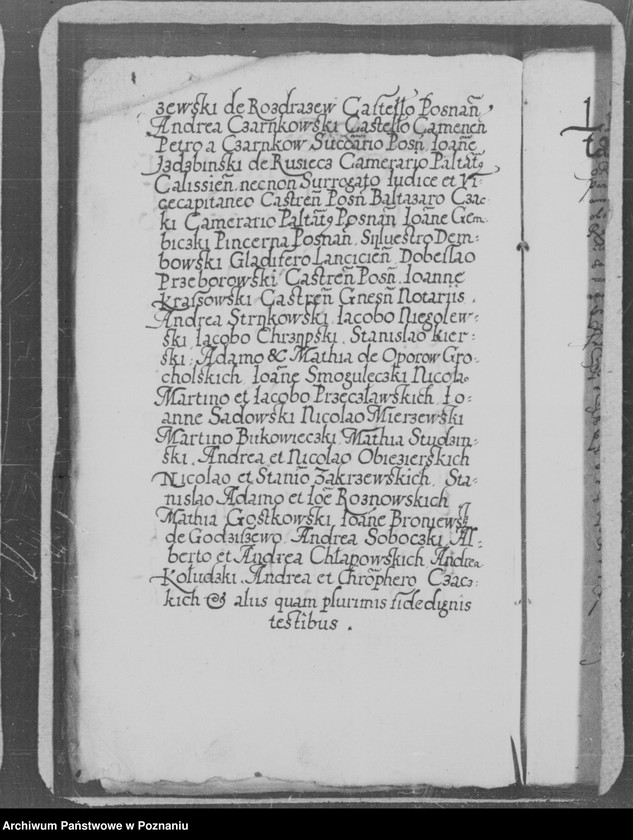 zewski de Rozdrazew Castello Posnan̄,
Andrea Czarnkowski Castello Camenen̄
Petro a Czarnkow Succario Posn̄. Ioan̄e
Jɜdɜbinski de Rusiecz Camerario Paltat9
Calissien̄. necnon Surrogato Iudice et Vi-
cecapitaneo Castren̄ Posn̄ Baltazaro Czac-
ki Camerario Paltat9 Posnan̄ Ioan̄e Gem-
biczki Pincerna Posnan̄. Sylvestro Dem-
bowski Gladifero Lancicien̄. Dobeslao
Przeborowski Castren̄ Posn̄. Ioanne
Krassowski Castren̄ Gnesn̄ Notariis.
Andrea Strykowski. Iacobo Niegolew-
ski. Iacobo Chrzypski. Stanislao Kier-
ski. Adamo & Mathia de Oporow Gro-
cholskich. Ioan̄e Smoguleczki Nicolao
Martino et Iacobo Przecławskich. Io-
anne Sadowski Nicolao Mierzewski
Martino Bukowieczki. Mathia Studzin-
ski. Andrea et Nicolao Obiezierskich
Nicolao et Stan̄io Zakrzewskich. Sta-
nislao Adamo et Iōe Roznowskich
Mathia Gostkowski. Ioan̄e Broniewski
de Godziszewo. Andrea Soboczki. Al-
berto et Andrea Chłapowskich Andrea
Kołudzki. Andrea et Chrōphero Czacz-
kich & aliis quam plurimis fidedignis
testibus.
Archiwum Państwowe w Poznaniu